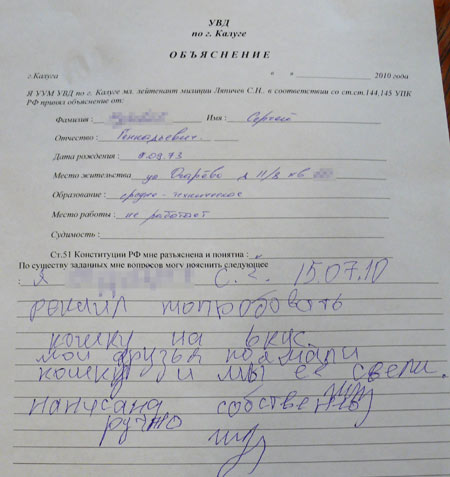 УВД
по г. Калуге
ОБЪЯСНЕНИЕ
г.Калуга « » 2010 года
Я УУМ УВД по г. Калуге мл. лейтенант милиции Ляпичев С.Н., в соответствии со ст.ст.144,145 УПК
РФ принял объяснение от:
Фамилия : Имя : Сергей
Отчество : Генкадьевич
Дата рождения : .09.73
Место жительства ул Огарёво д 11/8 кв
Образование : средне-техническое
Место работы : не работает
Судимость :
Ст.51 Конституции РФ мне разъяснена и понятна :
По существу заданных мне вопросов могу пояснить следующее
: Я С. Г. 15.07.10
решил попробовать
кошку на вкус.
мои друзья поймали
кошку и мы её свели.
написано собственно
ручно